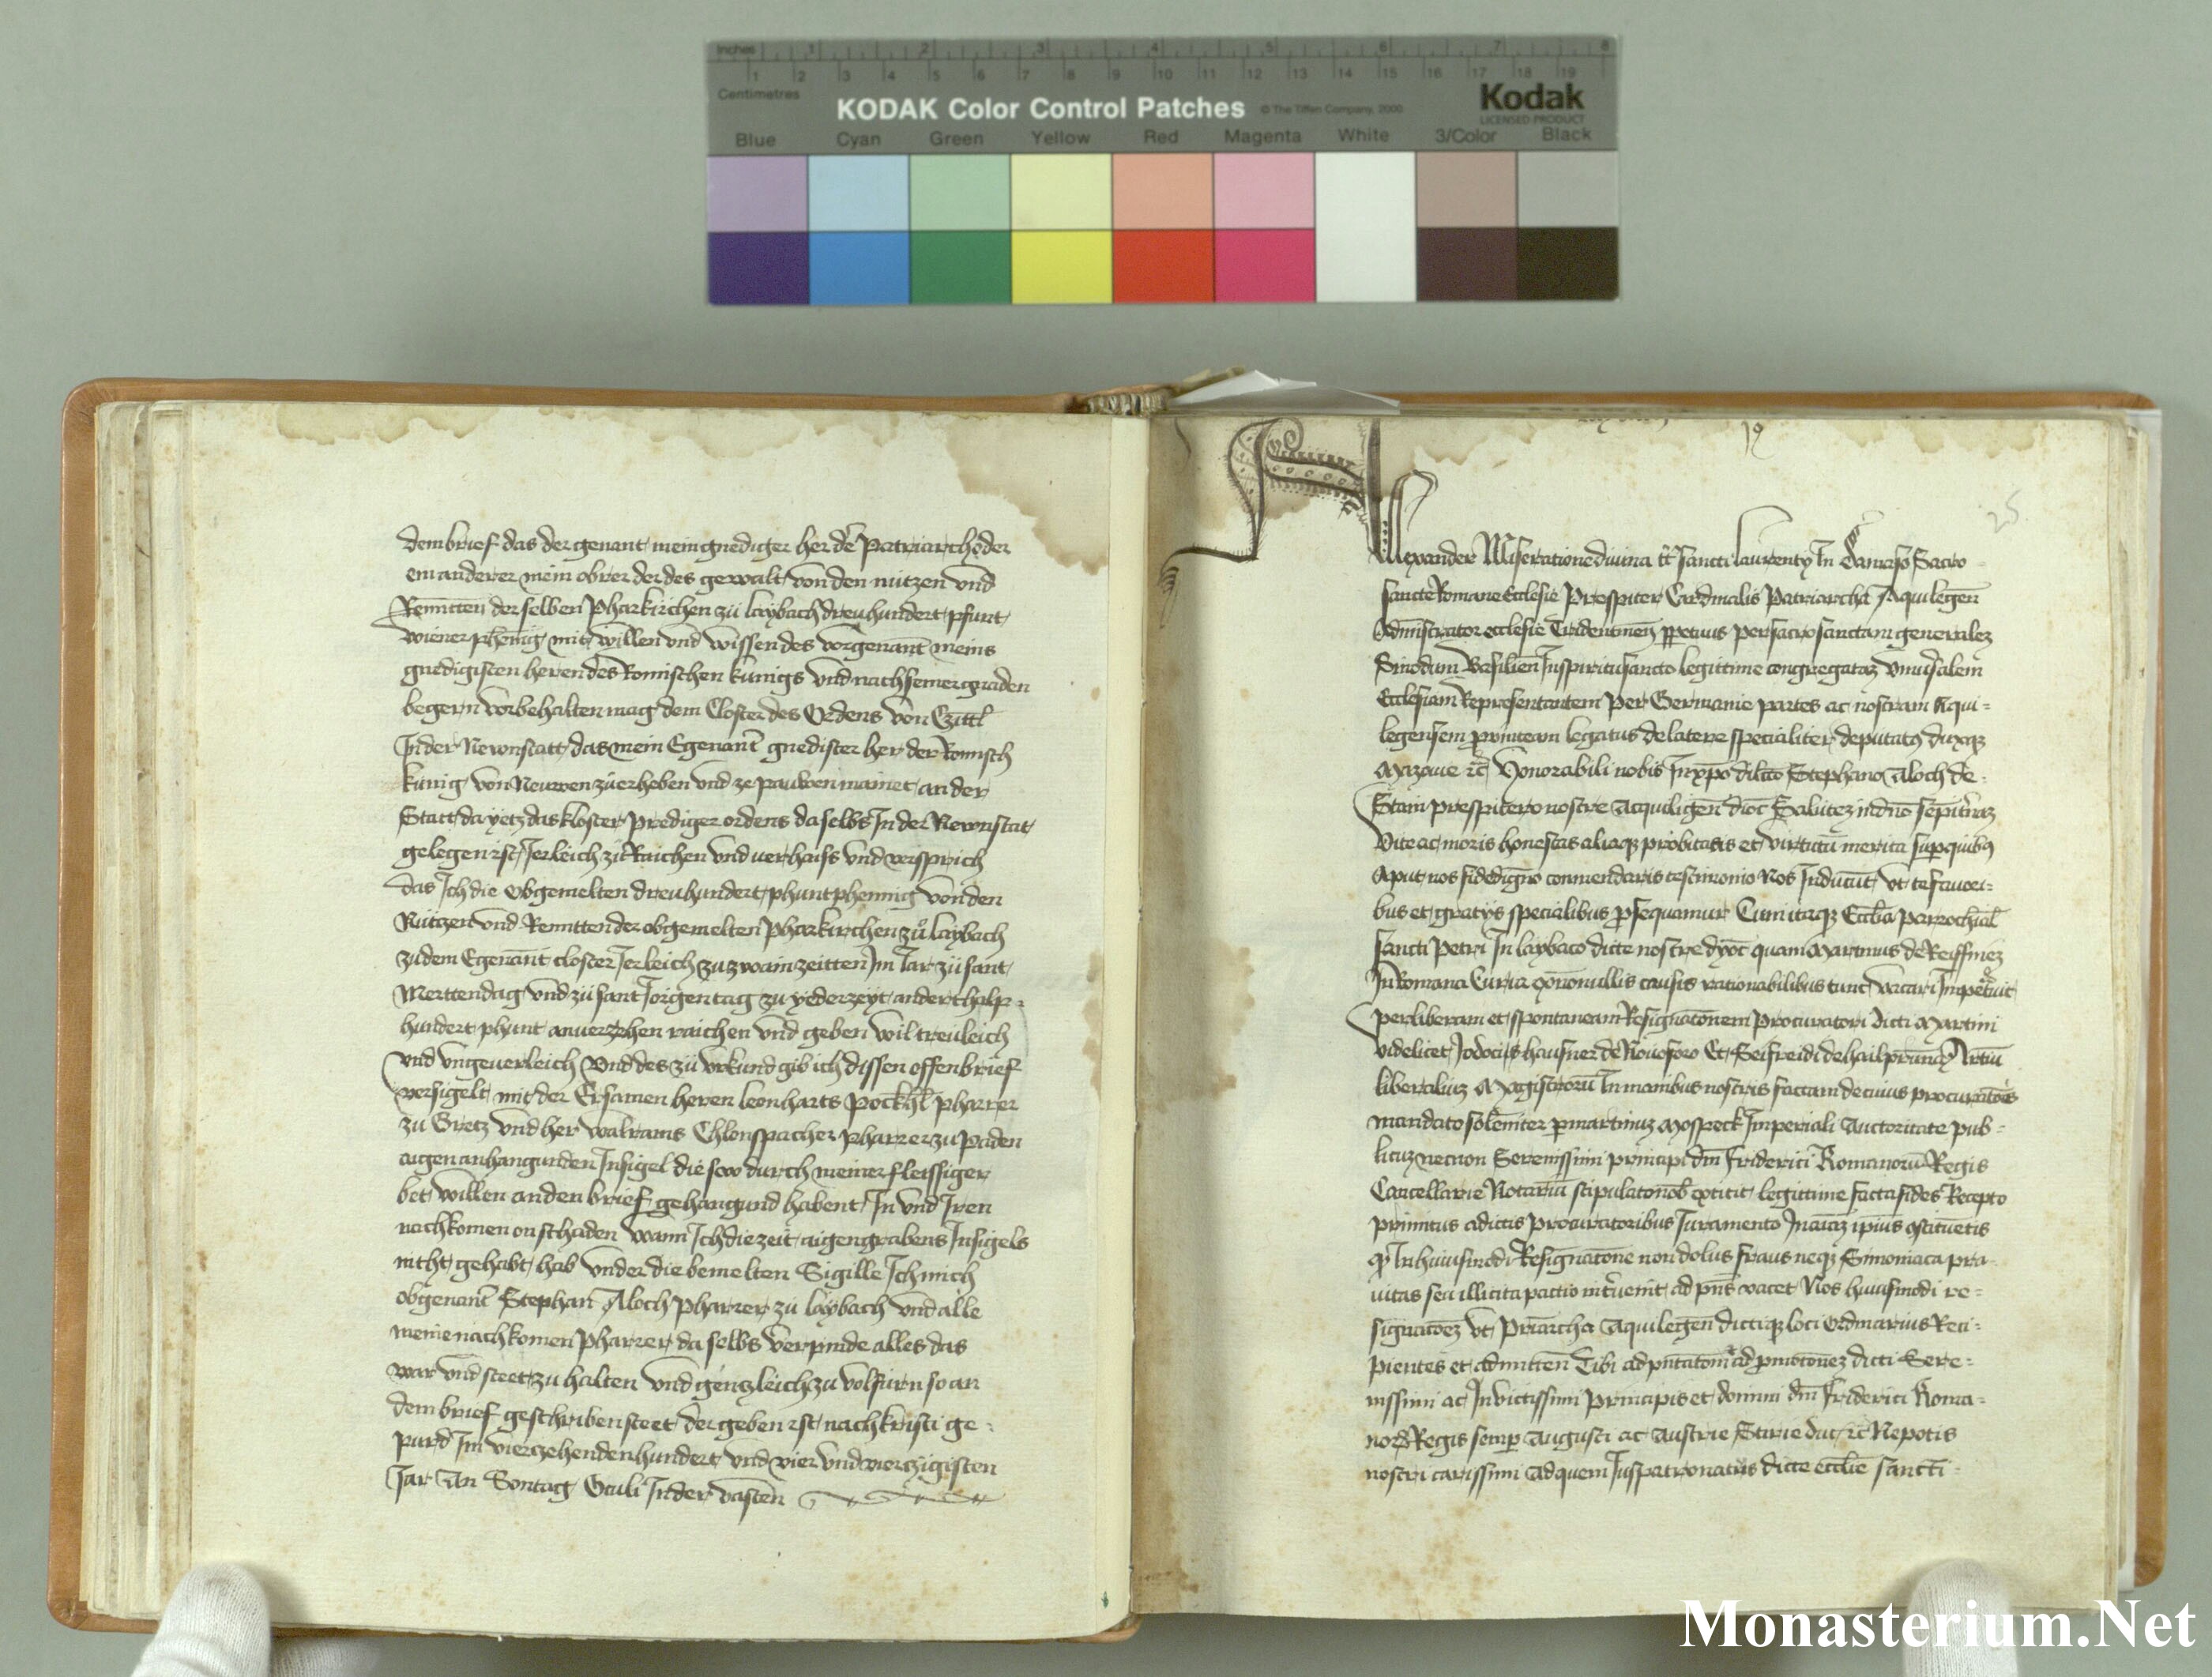 Inches 1 2 3 4 5 6 7 8
1 2 3 4 5 6 7 8 9 10 11 12 13 14 15 16 17 18 19
Centimetres
KODAK Color Control Patches © The Tiffen Company, 2000 Kodak
LICENSED PRODUCT
Blue Cyan Green Yellow Red Magenta White 3/Color Black
dem brief das der genant mein gnediger her der Patriarch oder
ein anderer mein obrer der des gewalt von den nutzen vnd
Rennten der selben Pharkirchen zu laybach dreuhundert pfunt
wiener phennig mit willen vnd wissen des vorgenant meins
gnedigisten heren des Romischen kunigs vnd nach seiner gnaden
begern vorbehalten mag dem Closter des Ordens von Czittl
In der Newnstatt das mein Egenant gnedister her der Romisch
kunig von Neuwen zu erheben vnd ze pauwen mainet an der
Statt da yetz das kloster prediger ordens da selbs In der Newnstat
gelegen ist Jerleich zu Raichen vnd verhaiss vnd versprich
das Ich die obgemelten dreuhundert phunt phennig von den
Nutzen vnd Rennten der obgemelten Pharkirchen zu laybach
zu dem Egenant closter Jerleich zu zwain zeitten Im Jar zu sant
Merttendag vnd zu sant Jorigen tag zu yeder zeyt anderthalp
hundert phunt anuerzehen raichen vnd geben wil treuleich
vnd vngeuerleich Vnd des zu vrkund gib ich dissen offen brief
versigelt mit der Ersamen heren leonharts Pockhl pharrer
zu Gretz vnd her walrams Chlonspacher pharrer zu paden
aigen anhangunden Insigel die sew durch meiner fleissiger
bet willen an den brief gehangund habent In vnd Iren
nachkomen on schaden wann Ich die zeit aigen grabens Insigels
nicht gehabt hab vnder die bemelten Sigille Ich mich
obgenant Stephan Aloch Pharrer zu laybach vnd alle
meine nachkomen Pharrer da selbs verpinde alles das
war vnd steet zu halten vnd gentzleich zu volfurn so an
dem brief geschriben steet der geben ist nach kristi ge
purd Im vierczehenden hundert vnd vier vnd vierczigisten
Jar An Sontag Oculi In der vasten
19
25
Alexander Miseratione diuina tt sancti laurenty In Damaso Sacro
sancte Romane Ecclesie Prespiter Cardinalis Patriarcha Aquilegen
Administrator ecclesie Tridentinen ppetuus per sacrosanctam generalez
Sinodum Basilien In spiritusancto legittime congregataz vniuersalem
Ecclesiam Representantem per Germanie partes ac nostram Aqui
legensem prouinciam legatus de latere specialiter deputatus duxqz
Mazouie etc Honorabili nobis In xpo dilecto Stephano Aloch de
Stain prespitero nostre Aquiligen dioc Salutez in dno sempiternaz
Vite ac moris honestas aliaqz probitatis et virtutum merita super quibus
Aput nos fidedigno conmendaris testimonio Nos Inducunt vt te fauori
bus et gratys specialibus prosequamur Cum itaqz Ecclia parrochial
sancti Petri In laybaco dicte nostre dyoc quam Martinus de Reiffniez
In Romana Curia ex nonnullis causis rationabilibus tunc vacari Inpetrauit
per liberam et spontaneam Resignationem Procuratori dicti Martini
videlicet Jodocus hausner de Nouoforo Et Seifreidi de hailprunn Artium
liberaliuz Magistrorum In manibus nostris factam de cuius procuratoris
mandato solemniter per martinuz Mospeck Imperiali Auctoritate pub
licuz necnon Serenissimi principi dni Friderici Romanorum Regis
Cancellarie Notarium stipulatonob extitit legittime facta fides Recepto
primitus a dictis Procuratoribus Juramento In animaz ipsius constituentis
q In huiusmodi Resignatione non dolus fraus neqz Simoniaca pra
uitas seu illicita pactio interuenit ad pns vacet Nos huiusmodi re
signatoez vt Priarcha Aquilegen dictiqz loci ordinarius Reci
pientes et admitten Tibi ad pntatom et ad pmotonez dicti Sere
nissimi ac Inuictissimi principis et domini dni Friderici Roma
nor Regis semper Augusti ac Austrie Stirie duc etc Nepotis
nostri carissimi ad quem Juspatronatus dicte ecclie sancti
Monasterium.Net